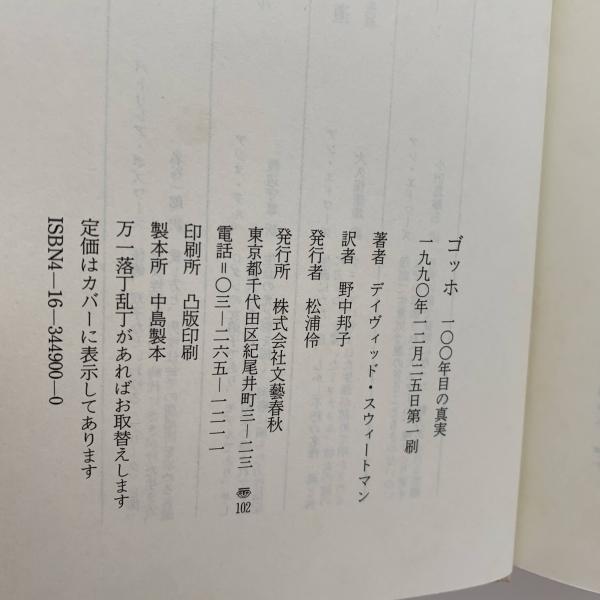 ゴッホ 一〇〇年目の真実
一九九〇年一二月二五日第一刷
著者 デイヴィッド・スウィートマン
訳者 野中邦子
発行者 松浦伶
発行所 株式会社文藝春秋
東京都千代田区紀尾井町三―二三 〠102
電話=〇三―二六五―一二一一
印刷所 凸版印刷
製本所 中島製本
万一落丁乱丁があればお取替えします
定価はカバーに表示してあります
ISBN4―16―344900―0